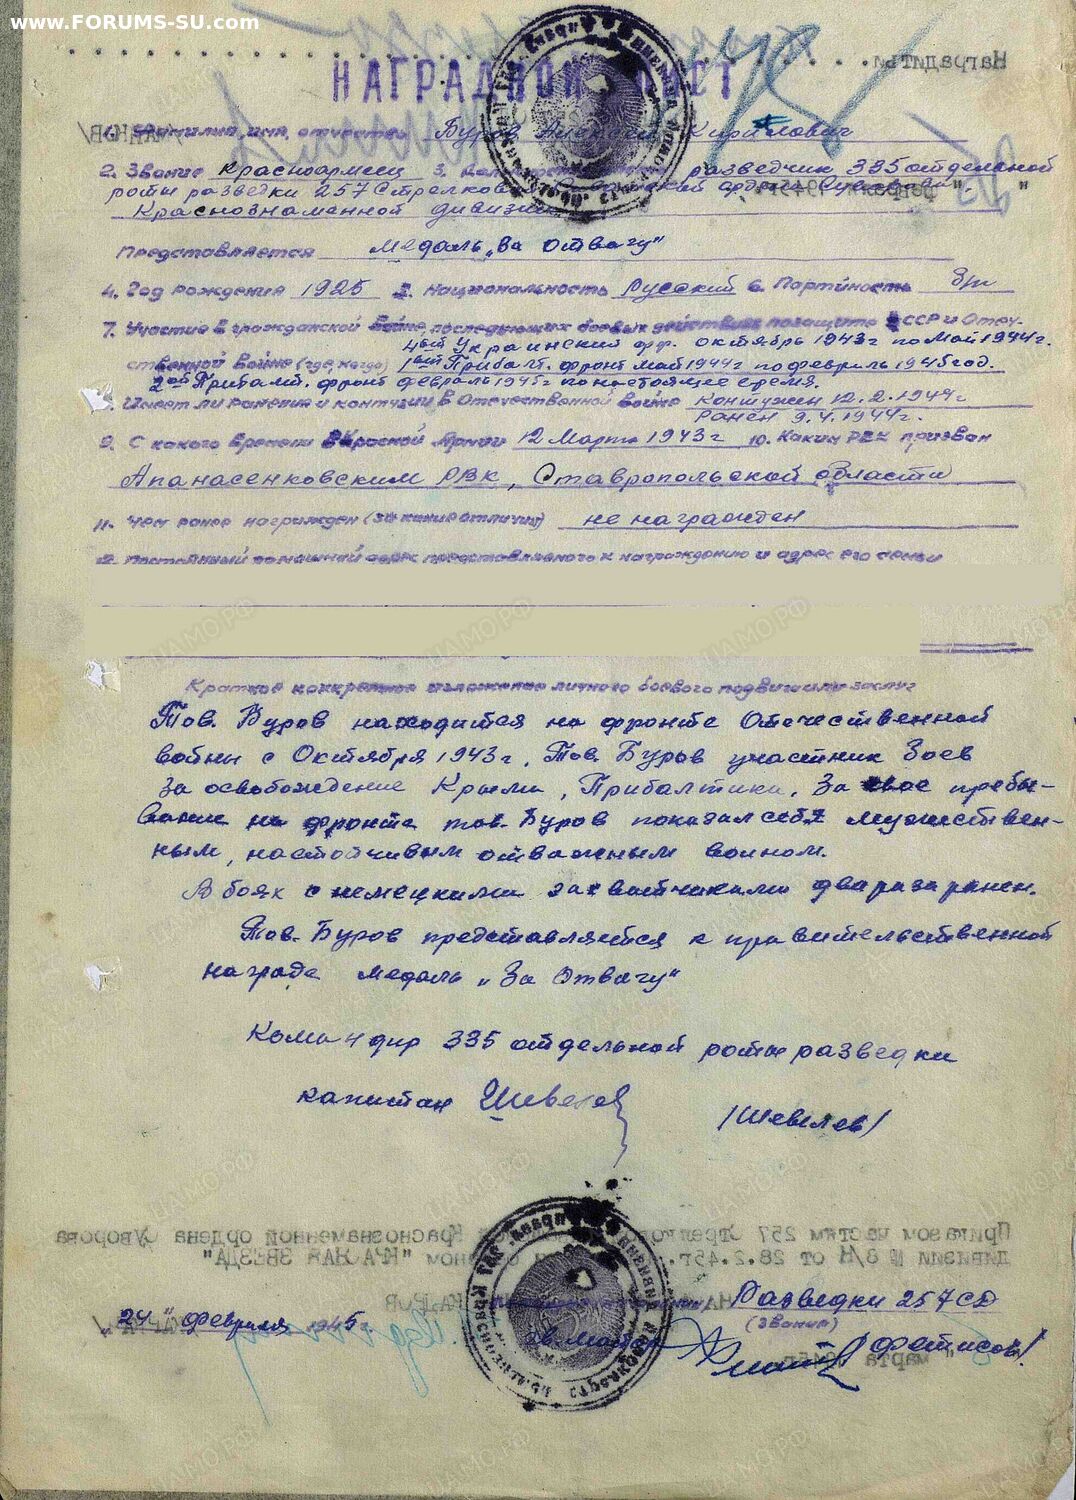 www.FORUMS-SU.com
НАГРАДНОЙ ЛИСТ
Наградить
Фамилия, имя, отчество Буров Алексей Кирилович
2. Звание Красноармеец 3. разведчик 335 отдельной
роты разведки 257 Стрелковой ордена Суворова
Краснознаменной дивизии
Представляется Медаль „За Отвагу"
4. Год рождения 1925 5. Национальность Русский 6. Партийность б/п
7. Участие в гражданской войне, последующих боевых действиях по защите СССР и Отече-
4ый Украинский фр. октябрь 1943г по май 1944г.
ственной войне (где, когда) 1ый Прибалт. фронт май 1944г по февраль 1945 год.
2ой Прибалт. фронт февраль 1945г по настоящее время.
Имеет ли ранения и контузии в Отечественной войне контужен 12.2.1944г
Ранен 9.4.1944г.
9. С какого времени в Красной Армии 12 Марта 1943г 10. Каким РВК призван
Апанасенковским РВК, Ставропольской области
11. Чем ранее награжден (за какие отличия) не награжден
12. Постоянный домашний адрес представляемого к награждению и адрес его семьи
Краткое конкретное изложение личного боевого подвига или заслуг
Тов. Буров находится на фронте Отечественной
войны с Октября 1943г. Тов. Буров участник боев
за освобождение Крыма, Прибалтики. За свое пребы-
вание на фронте тов. Буров показал себя мужествен-
ным, настойчивым отважным воином.
В боях с немецкими захватчиками два раза ранен.
Тов. Буров представляется к правительственной
награде медаль „За Отвагу"
Командир 335 отдельной роты разведки
капитан Шевелев /Шевелев/
Приказом частям 257 Стрелковой Краснознаменной ордена Суворова
дивизии № 8/Н от 28.2.45г. орденом "КРАСНАЯ ЗВЕЗДА"
Разведки 257 СД
(звание)
„24" февраля 1945г. гв. майор /Фетисов/
марта